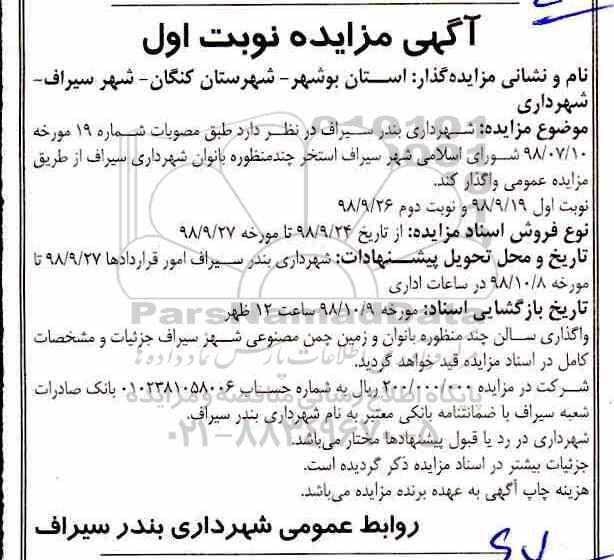 آگهی مزایده نوبت اول
نام و نشانی مزایده‌گذار: استان بوشهر- شهرستان کنگان- شهر سیراف-
شهرداری
موضوع مزایده: شهرداری بندر سیراف در نظر دارد طبق مصوبات شماره ۱۹ مورخه
۹۸/۰۷/۱۰ شورای اسلامی شهر سیراف استخر چندمنظوره بانوان شهرداری سیراف از طریق
مزایده عمومی واگذار کند.
نوبت اول ۹۸/۹/۱۹ و نوبت دوم ۹۸/۹/۲۶
نوع فروش اسناد مزایده: از تاریخ ۹۸/۹/۲۴ تا مورخه ۹۸/۹/۲۷
تاریخ و محل تحویل پیشنهادات: شهرداری بندر سیراف امور قراردادها ۹۸/۹/۲۷ تا
مورخه ۹۸/۱۰/۸ در ساعات اداری
تاریخ بازگشایی اسناد: مورخه ۹۸/۱۰/۹ ساعت ۱۲ ظهر
واگذاری سالن چند منظوره بانوان و زمین چمن مصنوعی شهر سیراف جزئیات و مشخصات
کامل در اسناد مزایده قید خواهد گردید.
شرکت در مزایده ۲۰۰/۰۰۰/۰۰۰ ریال به شماره حساب ۰۱۰۲۳۸۱۰۵۸۰۰۶ بانک صادرات
شعبه سیراف با ضمانتنامه بانکی معتبر به نام شهرداری بندر سیراف.
شهرداری در رد یا قبول پیشنهادها مختار می‌باشد.
جزئیات بیشتر در اسناد مزایده ذکر گردیده است.
هزینه چاپ آگهی به عهده برنده مزایده می‌باشد.
روابط عمومی شهرداری بندر سیراف
ParsNamadData
پایگاه اطلاع رسانی مناقصه و مزایده